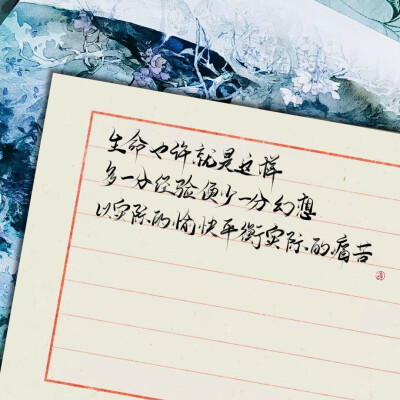 生命也许就是这样
多一分经验便少一分幻想
以实际的愉快平衡实际的痛苦